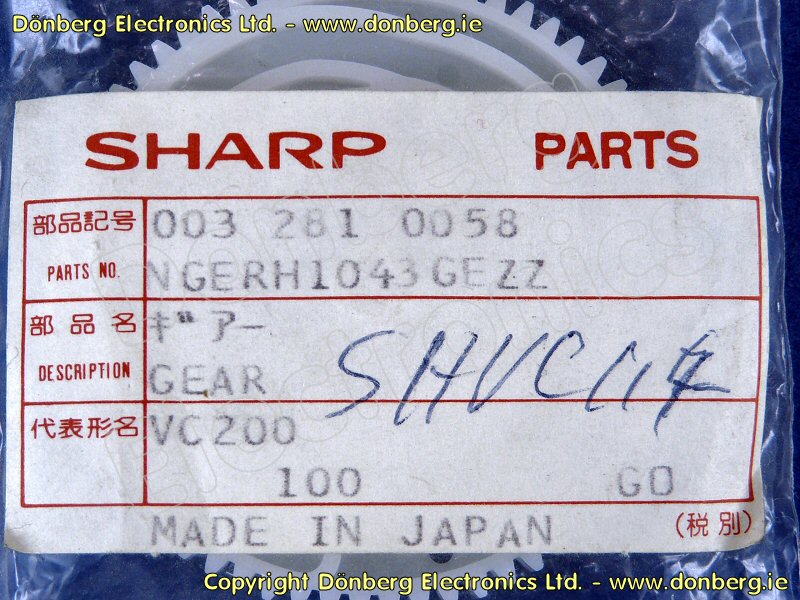 Dönberg Electronics Ltd. - www.donberg.ie
SHARP PARTS
部品記号 003 281 0058
PARTS NO. NGERH1043GEZZ
部品名 ギアー
DESCRIPTION GEAR
SHVC114
代表形名 VC200
100 GO
MADE IN JAPAN (税別)
Copyright Dönberg Electronics Ltd. - www.donberg.ie